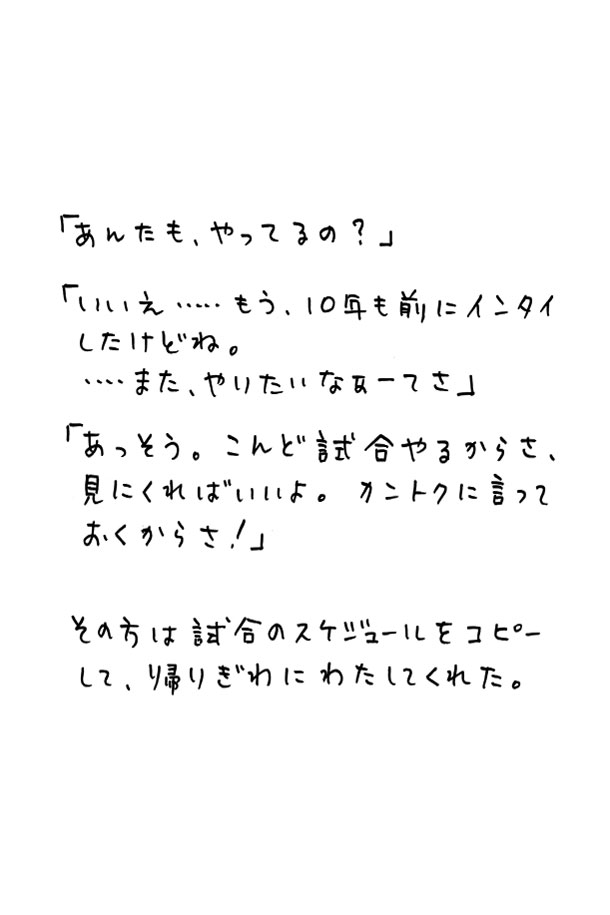 「あんたも、やってるの？」
「いいえ‥‥‥もう、10年も前にインタイ
したけどね。
‥‥また、やりたいなぁーてさ」
「あっそう。こんど試合やるからさ、
見にくればいいよ。カントクに言って
おくからさ！」
その方は試合のスケジュールをコピー
して、帰りぎわにわたしてくれた。